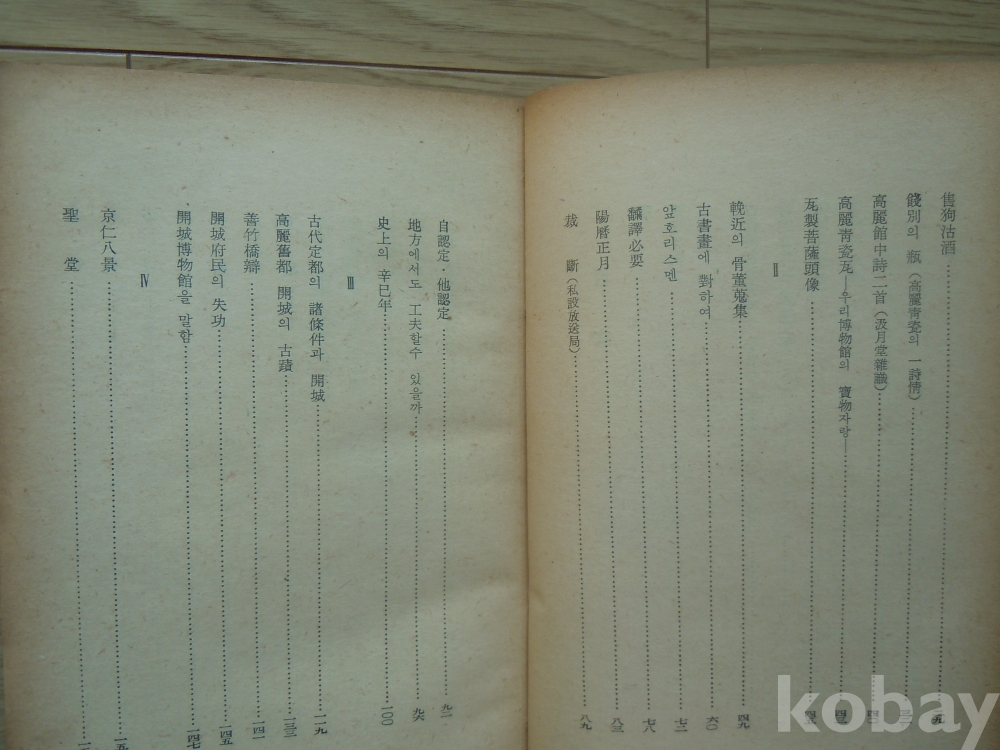 售狗沽酒……一九
餞別의 瓶(高麗靑瓷의 一詩情)
高麗館中詩二首(汲月堂雜識)
高麗靑瓷瓦—우리博物館의 寶物자랑—
瓦製菩薩頭像
Ⅱ
輓近의 骨董蒐集……四九
古書畫에 對하여……六〇
앞호리스멘……七二
飜譯必要……七八
陽曆正月……八三
裁斷(私設放送局)……八九
自認定·他認定……九二
地方에서도 工夫할수 있을까……九六
史上의 辛巳年……一〇〇
Ⅲ
古代定都의 諸條件과 開城……一一九
高麗舊都 開城의 古蹟……一三三
善竹橋辯……一四一
開城府民의 失功……一四五
開城博物館을 말함……一四七
Ⅳ
京仁八景
聖堂
kobay